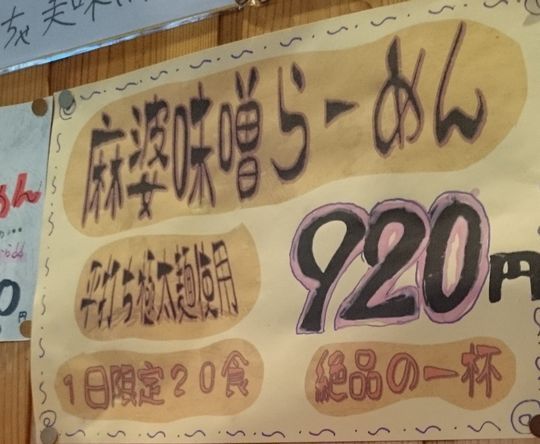 ちゃ美味
麻婆味噌らーめん
平打ち極太麺使用
920円
1日限定20食
絶品の一杯
めん
0円